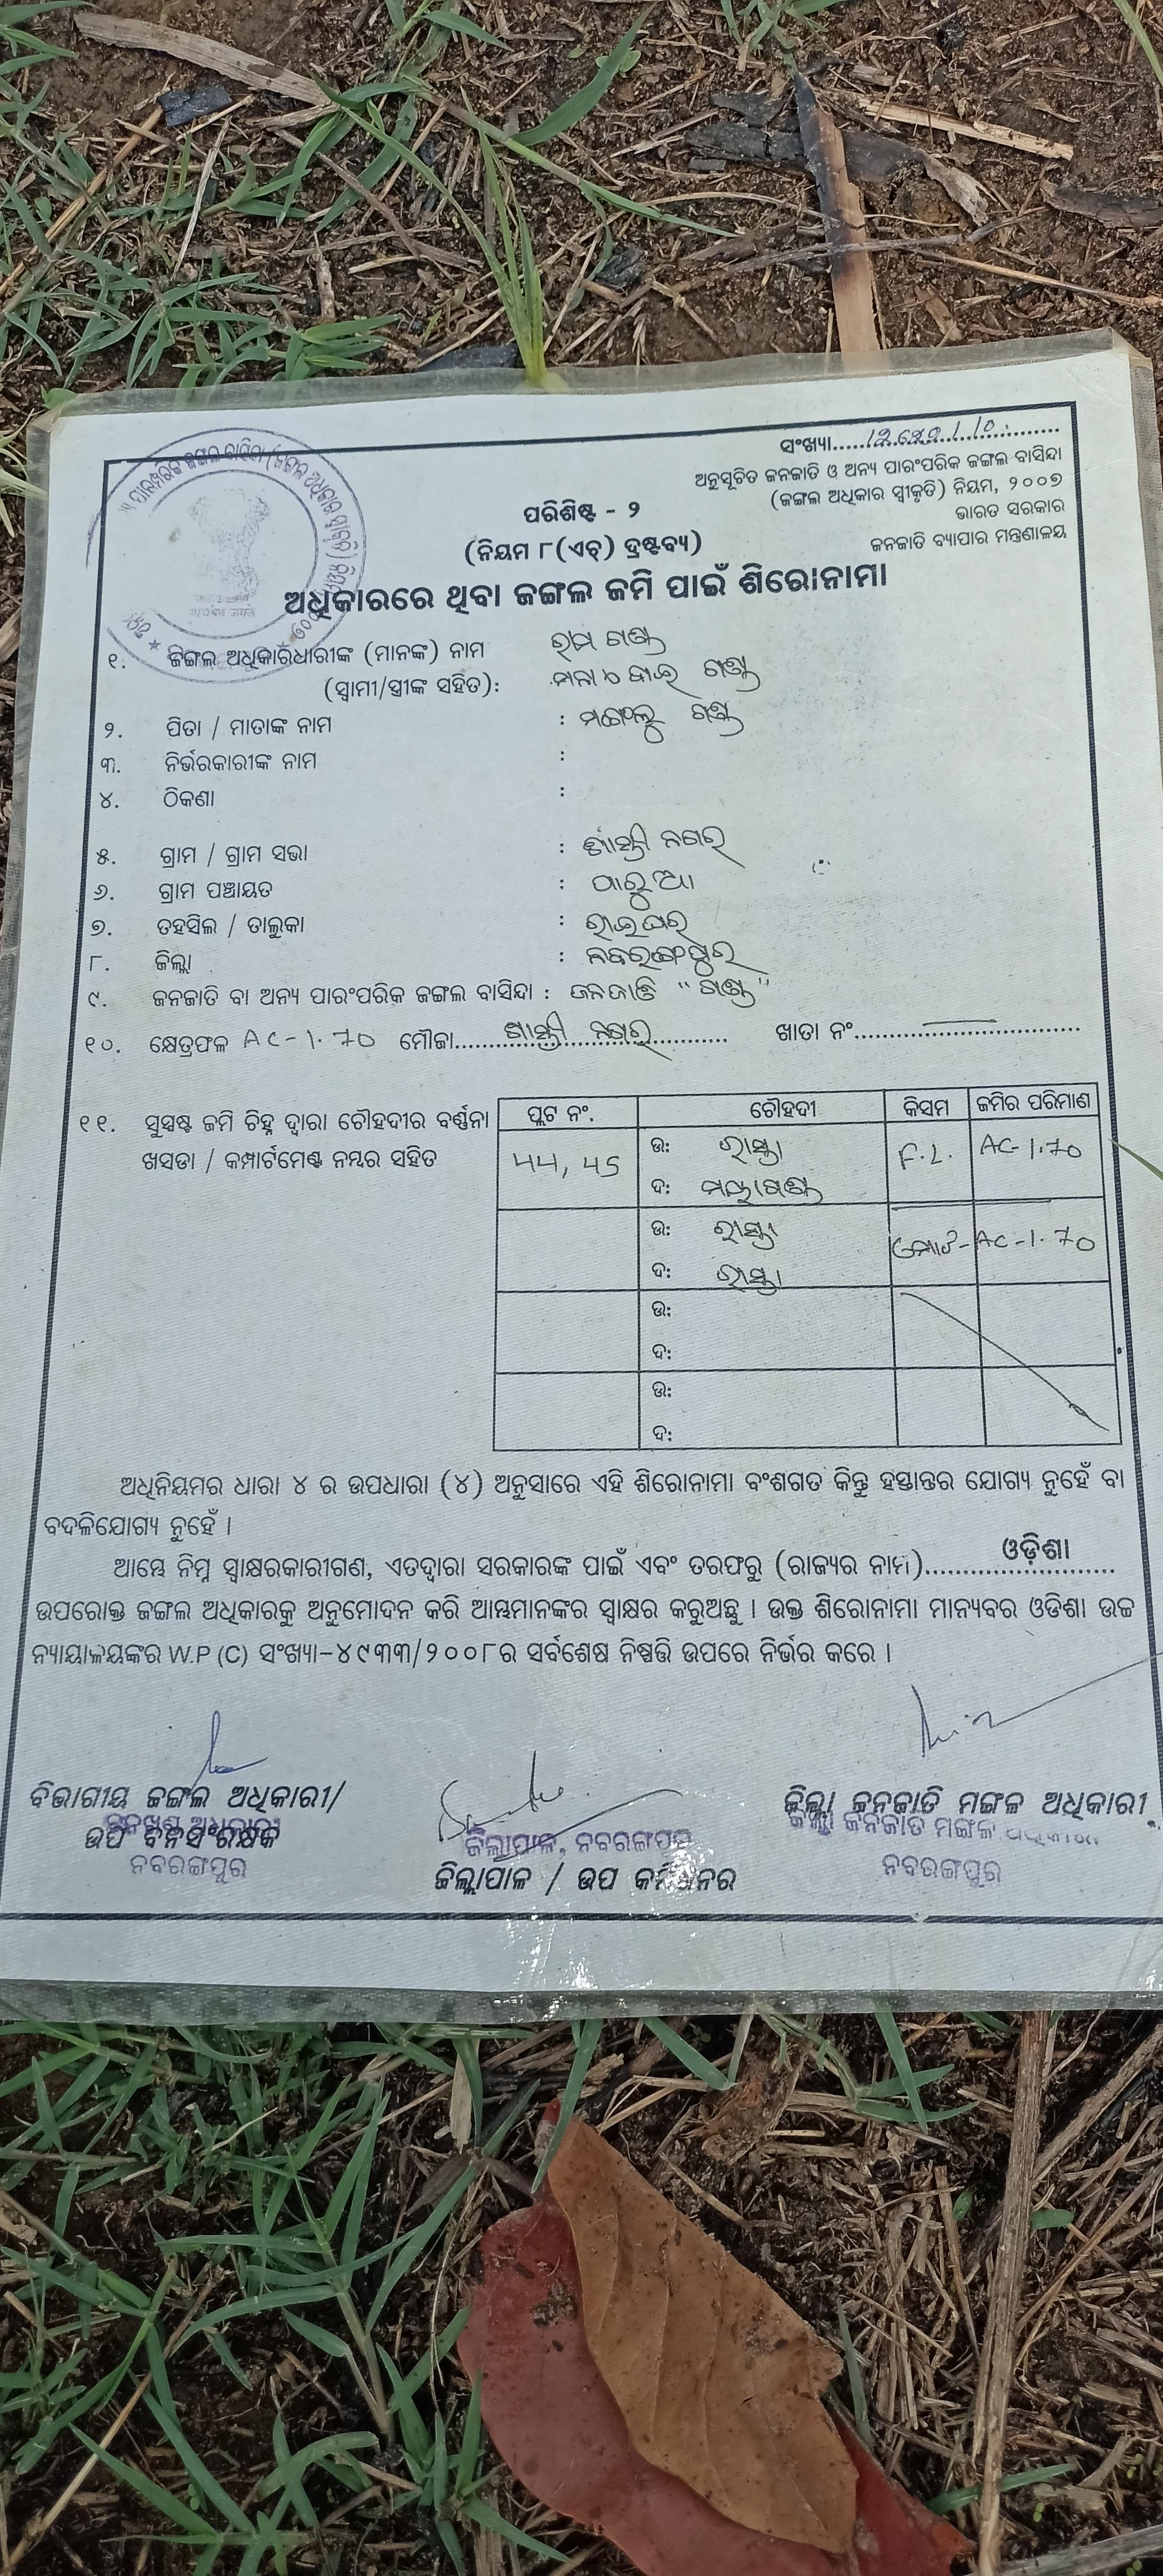 ସଂଖ୍ୟା..........................
ଅନୁସୂଚିତ ଜନଜାତି ଓ ଅନ୍ୟ ପାରଂପରିକ ଜଙ୍ଗଲ ବାସିନ୍ଦା
(ଜଙ୍ଗଲ ଅଧିକାର ସ୍ୱୀକୃତି) ନିୟମ, ୨୦୦୭
ଭାରତ ସରକାର
ଜନଜାତି ବ୍ୟାପାର ମନ୍ତ୍ରଣାଳୟ
ପରିଶିଷ୍ଟ - ୨
(ନିୟମ ୮(ଏଚ୍) ଦ୍ରଷ୍ଟବ୍ୟ)
ଅଧିକାରରେ ଥିବା ଜଙ୍ଗଲ ଜମି ପାଇଁ ଶିରୋନାମା
୧. ଜଙ୍ଗଲ ଅଧିକାରଧାରୀଙ୍କ (ମାନଙ୍କ) ନାମ ରାମ ଗଣ୍ଡ
(ସ୍ୱାମୀ/ସ୍ତ୍ରୀଙ୍କ ସହିତ): ଗଣ୍ଡ
୨. ପିତା / ମାତାଙ୍କ ନାମ : ମଙ୍ଗଲୁ ଗଣ୍ଡ
୩. ନିର୍ଭରକାରୀଙ୍କ ନାମ :
୪. ଠିକଣା :
୫. ଗ୍ରାମ / ଗ୍ରାମ ସଭା : ଶାସ୍ତ୍ରୀ ନଗର
୬. ଗ୍ରାମ ପଞ୍ଚାୟତ :
୭. ତହସିଲ / ତାଲୁକା : ରାଇଘର
୮. ଜିଲ୍ଲା : ନବରଙ୍ଗପୁର
୯. ଜନଜାତି ବା ଅନ୍ୟ ପାରଂପରିକ ଜଙ୍ଗଲ ବାସିନ୍ଦା : ଜନଜାତି "ଗଣ୍ଡ"
୧୦. କ୍ଷେତ୍ରଫଳ AC-1.70 ମୌଜା ଶାସ୍ତ୍ରୀ ନଗର ଖାତା ନଂ..........................
୧୧. ସୁସ୍ପଷ୍ଟ ଜମି ଚିହ୍ନ ଦ୍ୱାରା ଚୌହଦୀର ବର୍ଣ୍ଣନା
ଖସଡା / କମ୍ପାର୍ଟମେଣ୍ଟ ନମ୍ବର ସହିତ
ପ୍ଲଟ ନଂ. ଚୌହଦୀ କିସମ ଜମିର ପରିମାଣ
44, 45 ଉ: ରାସ୍ତା F.L. AC-1.70
ଦ:
ଉ: ରାସ୍ତା ମୋଟ- AC-1.70
ଦ: ରାସ୍ତା
ଉ:
ଦ:
ଉ:
ଦ:
ଅଧିନିୟମର ଧାରା ୪ ର ଉପଧାରା (୪) ଅନୁସାରେ ଏହି ଶିରୋନାମା ବଂଶଗତ କିନ୍ତୁ ହସ୍ତାନ୍ତର ଯୋଗ୍ୟ ନୁହେଁ ବା
ବଦଳିଯୋଗ୍ୟ ନୁହେଁ ।
ଆମ୍ଭେ ନିମ୍ନ ସ୍ୱାକ୍ଷରକାରୀଗଣ, ଏତଦ୍ୱାରା ସରକାରଙ୍କ ପାଇଁ ଏବଂ ତରଫରୁ (ରାଜ୍ୟର ନାମ) ଓଡ଼ିଶା
ଉପରୋକ୍ତ ଜଙ୍ଗଲ ଅଧିକାରକୁ ଅନୁମୋଦନ କରି ଆମ୍ଭମାନଙ୍କର ସ୍ୱାକ୍ଷର କରୁଅଛୁ । ଉକ୍ତ ଶିରୋନାମା ମାନ୍ୟବର ଓଡିଶା ଉଚ୍ଚ
ନ୍ୟାୟାଳୟଙ୍କର W.P (C) ସଂଖ୍ୟା-୪୯୩୩/୨୦୦୮ର ସର୍ବଶେଷ ନିଷ୍ପତ୍ତି ଉପରେ ନିର୍ଭର କରେ ।
ବିଭାଗୀୟ ଜଙ୍ଗଲ ଅଧିକାରୀ/
ଉପ ବନସଂରକ୍ଷକ
ନବରଙ୍ଗପୁର
ଜିଲ୍ଲାପାଳ, ନବରଙ୍ଗପୁର
ଜିଲ୍ଲାପାଳ / ଉପ କମିଶନର
ଜିଲ୍ଲା ଜନଜାତି ମଙ୍ଗଳ ଅଧିକାରୀ
ଜିଲ୍ଲା ଜନଜାତି ମଙ୍ଗଳ ଅଧିକାରୀ
ନବରଙ୍ଗପୁର